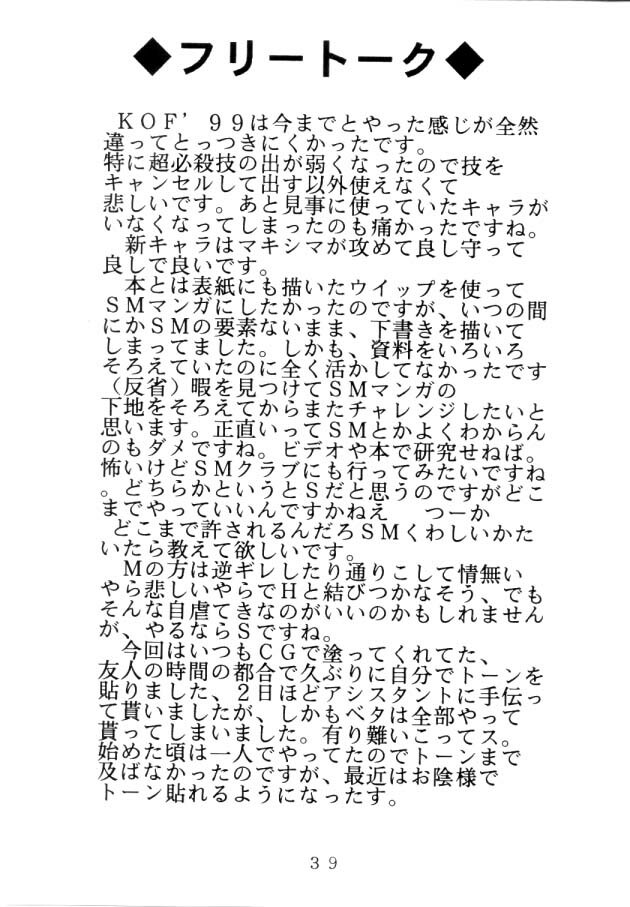 ◆フリートーク◆
ＫＯＦ’９９は今までとやった感じが全然
違ってとっつきにくかったです。
特に超必殺技の出が弱くなったので技を
キャンセルして出す以外使えなくて
悲しいです。あと見事に使っていたキャラが
いなくなってしまったのも痛かったですね。
新キャラはマキシマが攻めて良し守って
良しで良いです。
本とは表紙にも描いたウイップを使って
ＳＭマンガにしたかったのですが、いつの間
にかＳＭの要素ないまま、下書きを描いて
しまってました。しかも、資料をいろいろ
そろえていたのに全く活かしてなかったです
（反省）暇を見つけてＳＭマンガの
下地をそろえてからまたチャレンジしたいと
思います。正直いってＳＭとかよくわからん
のもダメですね。ビデオや本で研究せねば。
怖いけどＳＭクラブにも行ってみたいですね
。どちらかというとＳだと思うのですがどこ
までやっていいんですかねえ　つーか
どこまで許されるんだろＳＭくわしいかた
いたら教えて欲しいです。
Ｍの方は逆ギレしたり通りこして情無い
やら悲しいやらでＨと結びつかなそう、でも
そんな自虐てきなのがいいのかもしれません
が、やるならＳですね。
今回はいつもＣＧで塗ってくれてた、
友人の時間の都合で久ぶりに自分でトーンを
貼りました、２日ほどアシスタントに手伝っ
て貰いましたが、しかもベタは全部やって
貰ってしまいました。有り難いこってス。
始めた頃は一人でやってたのでトーンまで
及ばなかったのですが、最近はお陰様で
トーン貼れるようになったす。
３９